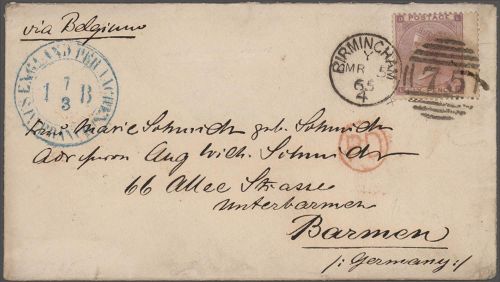 via Belgium
AUS ENGLAND PER AACHEN
7
3
1 B
FRANCO
BIRMINGHAM
Y
MR
65
4
POSTAGE
SIX PENCE
75
PD
Frau Marie Schmidt geb. Schmidt
Adr. Herrn Aug Wilh. Schmidt
66 Allee Strasse
Unterbarmen
Barmen
/: Germany :/